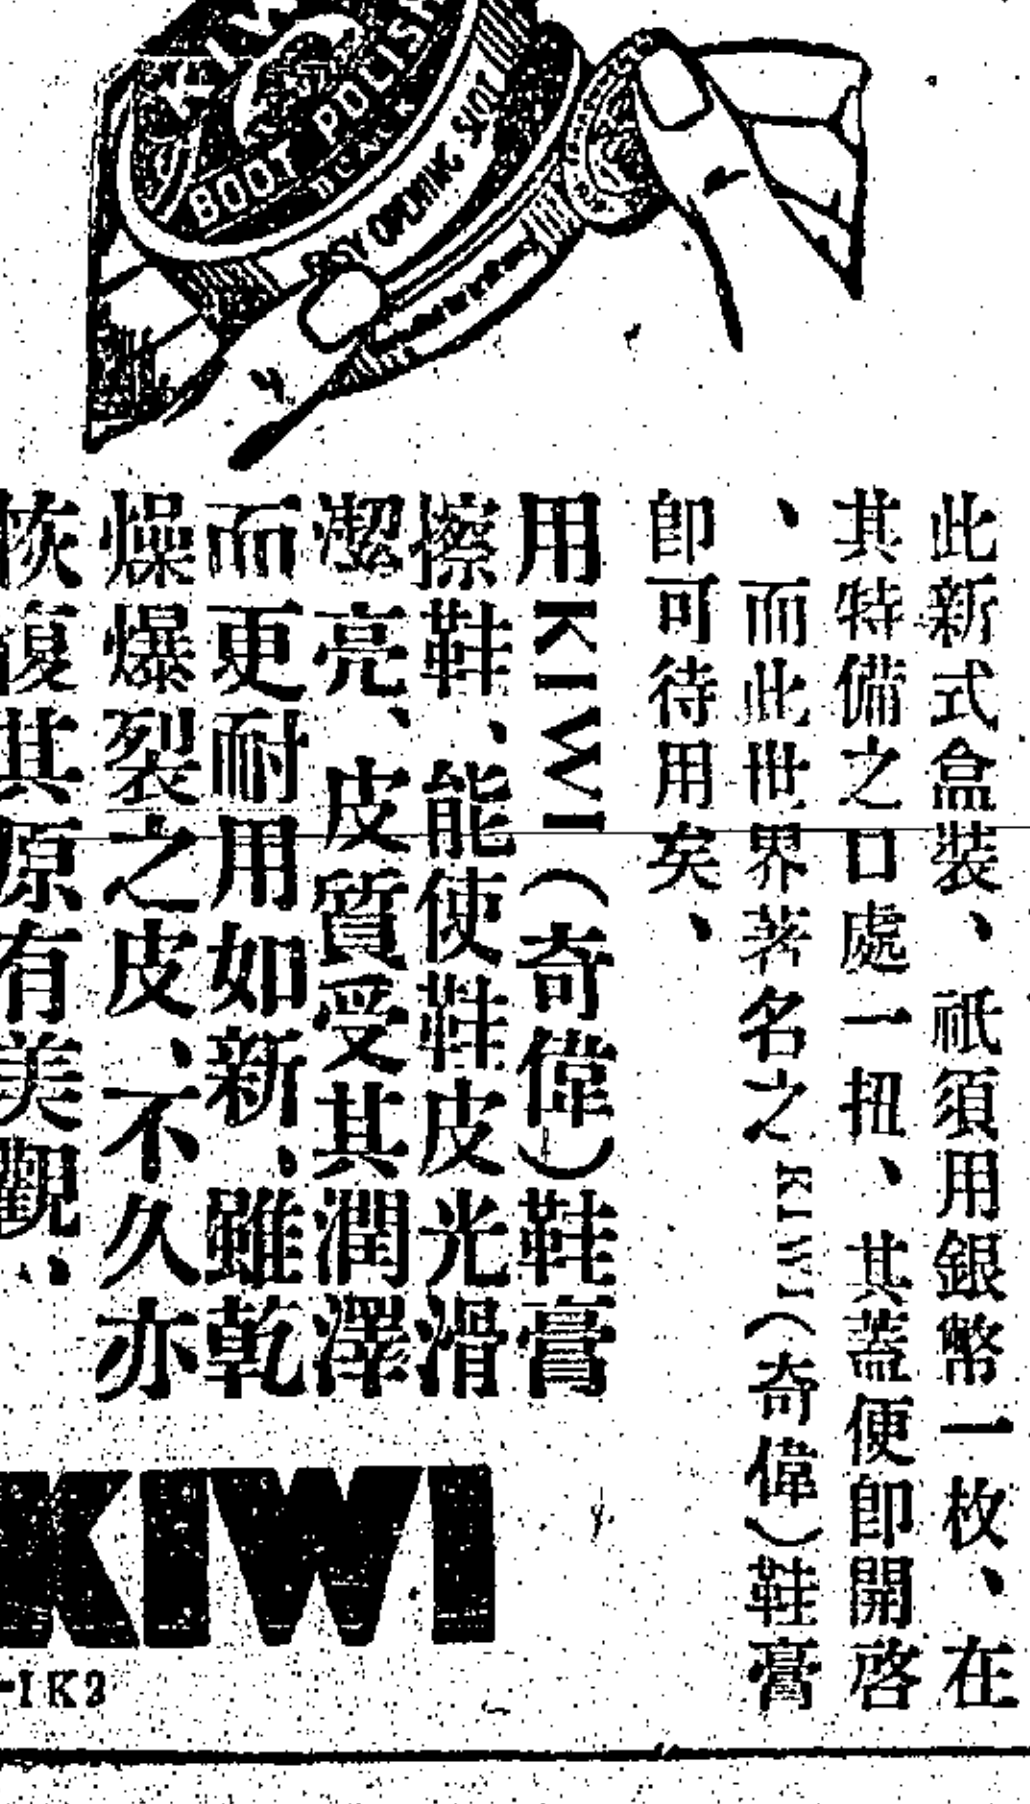 KIWI
BOOT POLISH
BLACK
EASY OPENING SLOT
此新式盒裝、祇須用銀幣一枚、在
其特備之口處一扭、其蓋便卽開啓
、而此世界著名之KIWI(奇偉)鞋膏
卽可待用矣、
用KIWI(奇偉)鞋膏
擦鞋、能使鞋皮光滑
潔亮、皮質受其潤澤
而更耐用如新、雖乾
燥爆裂之皮、不久亦
恢復其原有美觀、
KIWI
-IK3